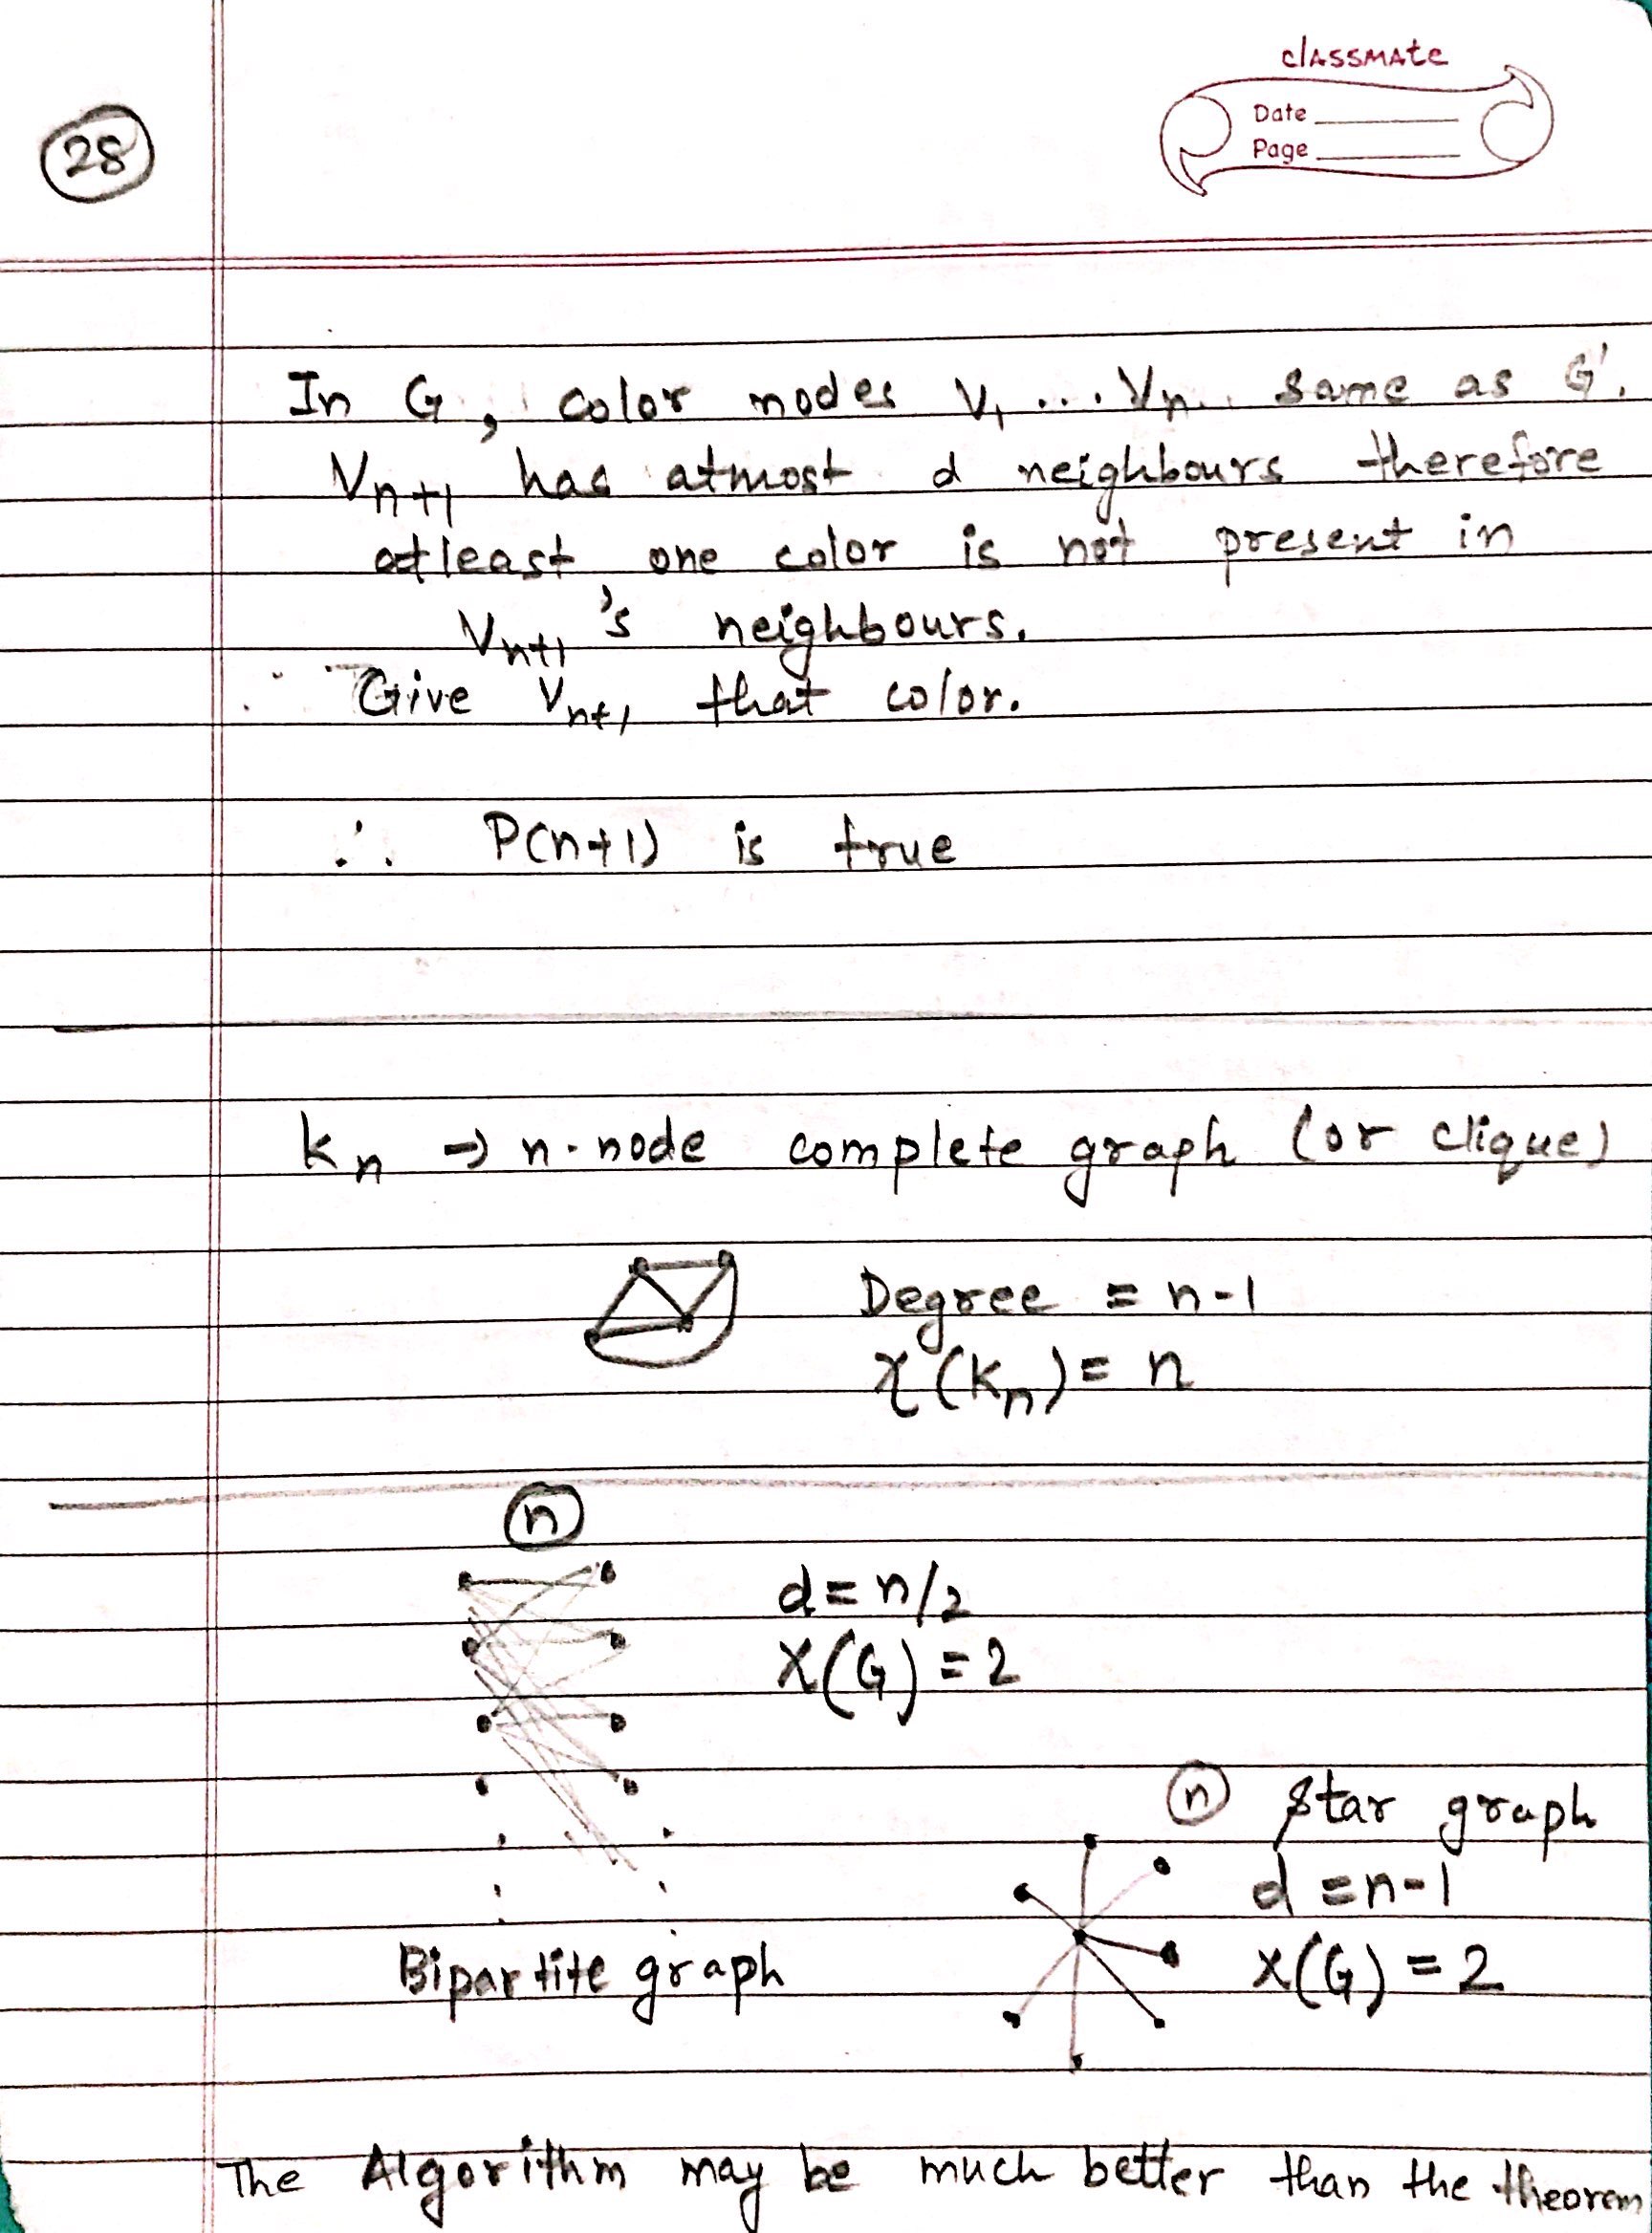 classmate
Date
Page
28
In G, color nodes V₁ ... Vₙ same as G'.
Vₙ₊₁ has atmost d neighbours therefore
atleast one color is not present in
Vₙ₊₁'s neighbours.
Give Vₙ₊₁ that color.
∴ P(n+1) is true
kₙ ⇒ n-node complete graph (or clique)
Degree = n-1
χ(Kₙ) = n
n
d = n/2
χ(G) = 2
n Star graph
d = n-1
χ(G) = 2
Bipartite graph
The Algorithm may be much better than the theorem